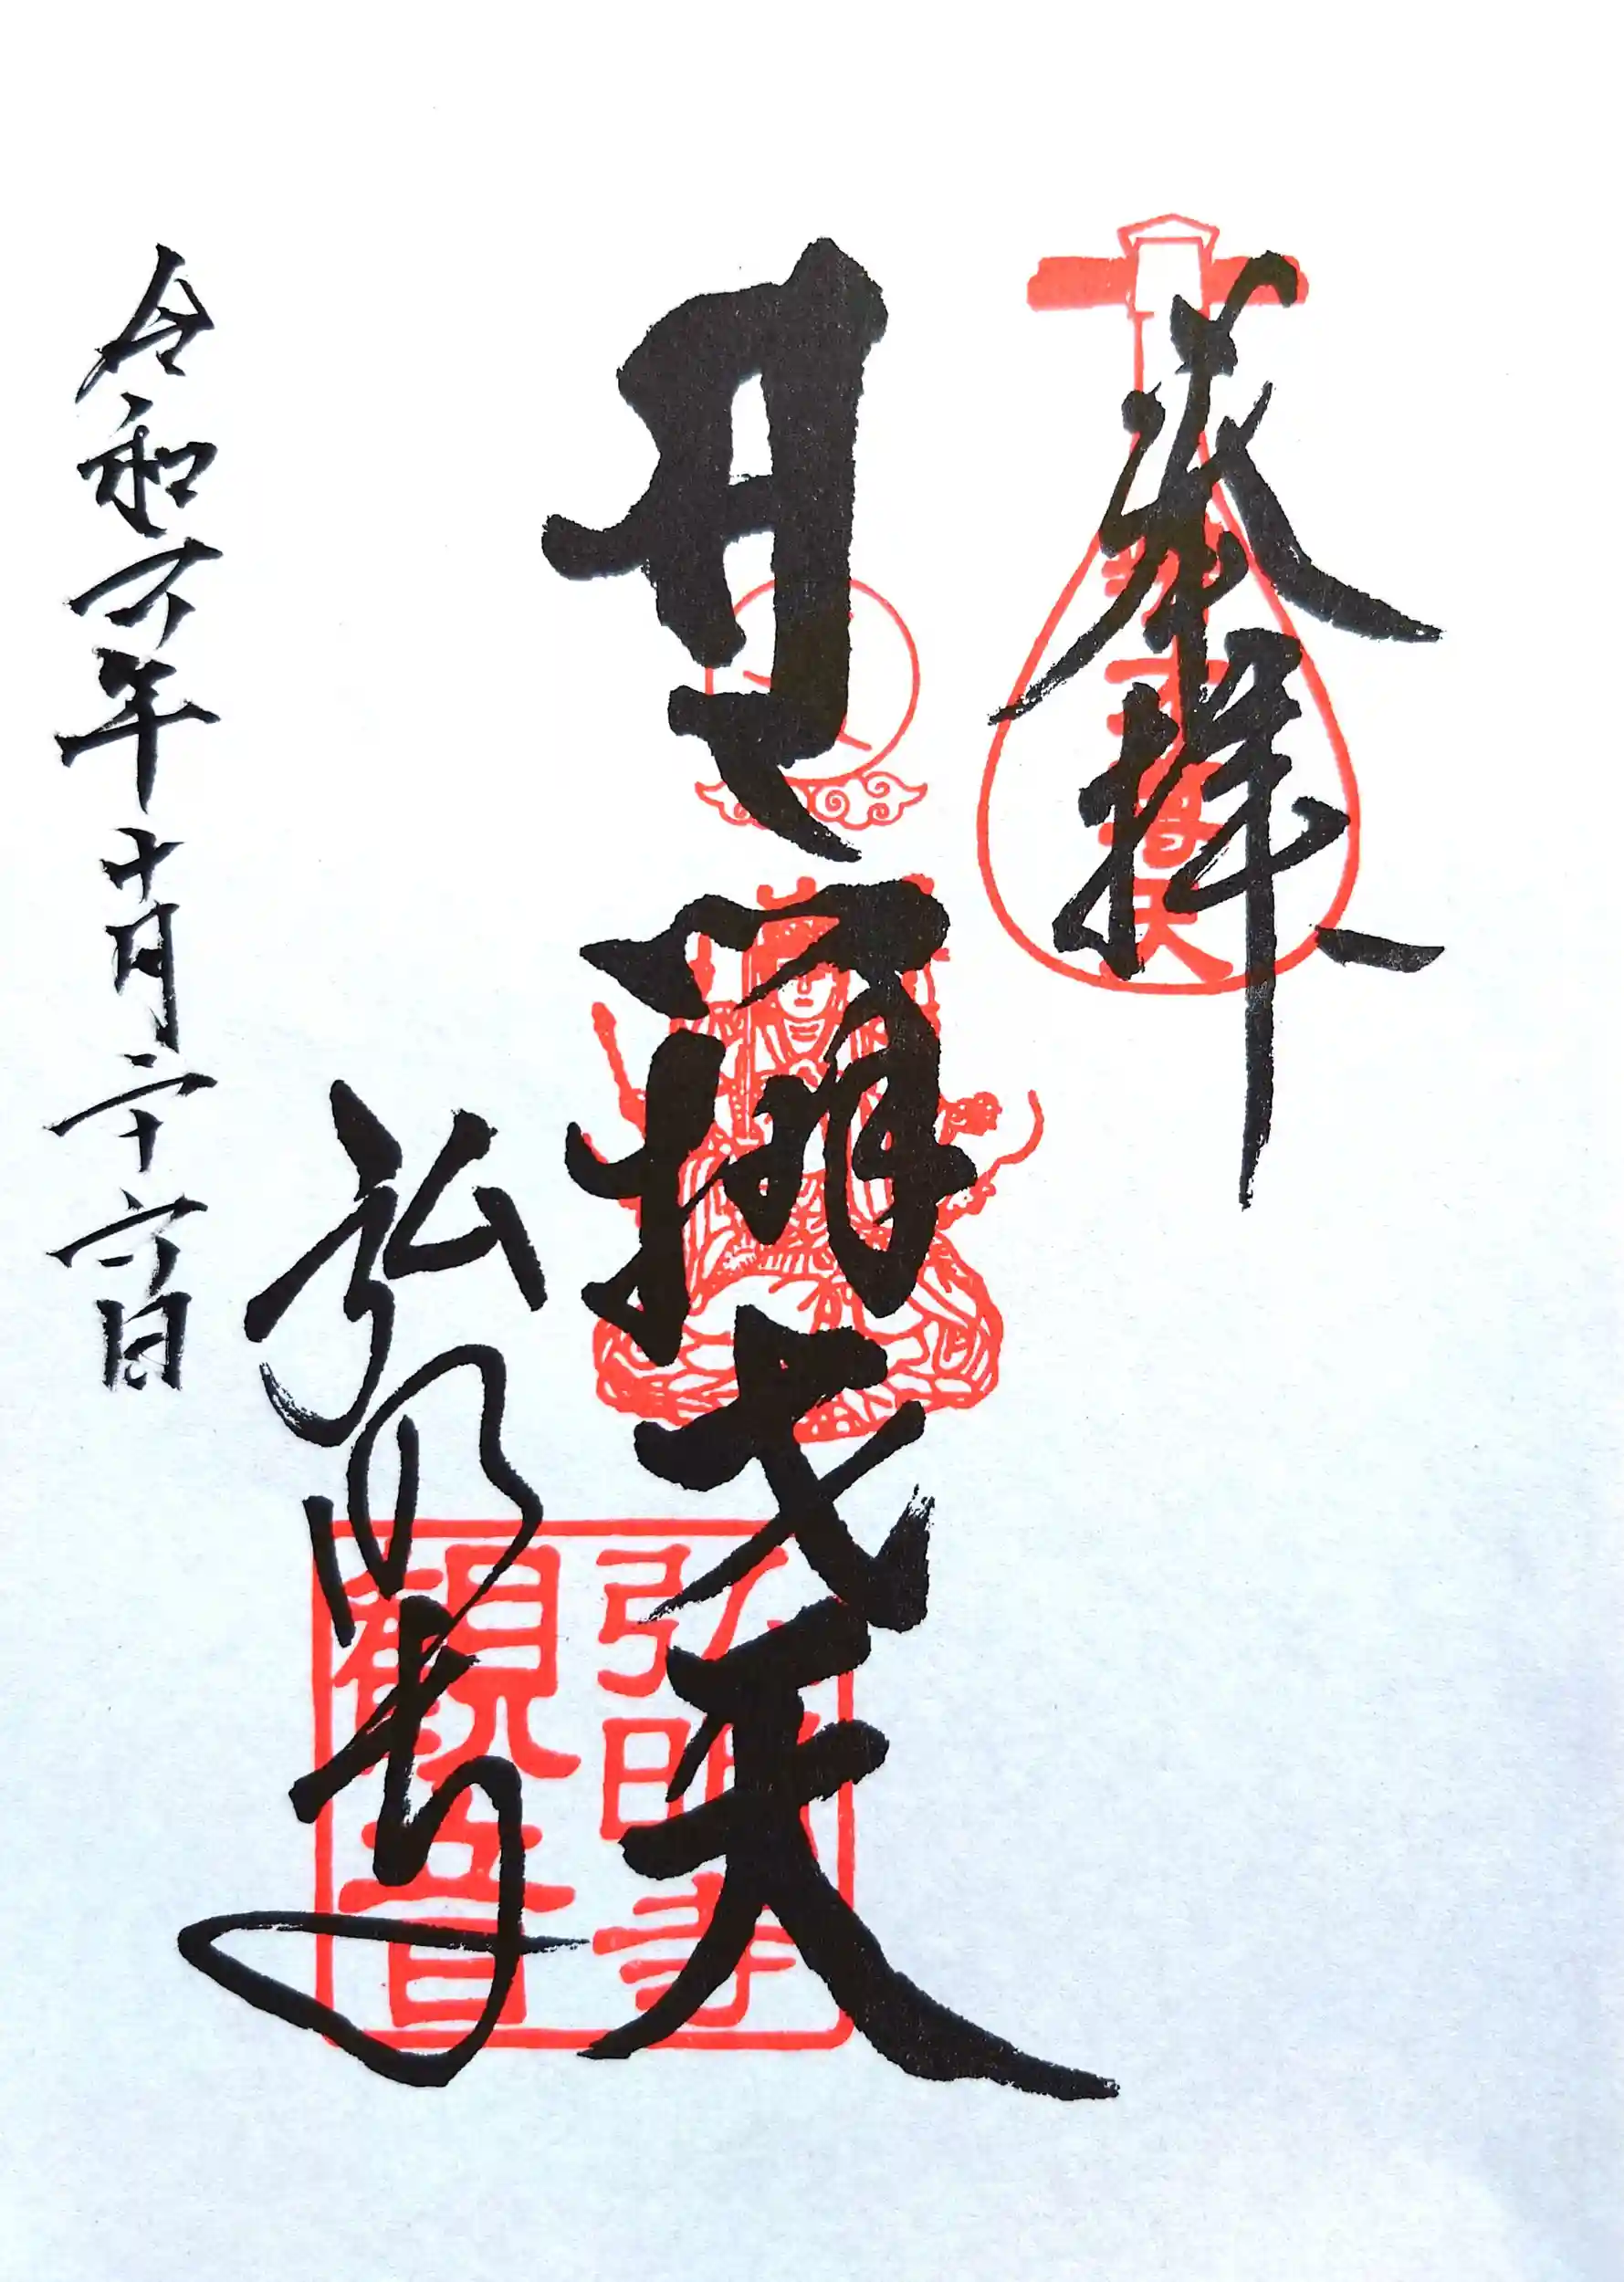 奉拝
辨才天
弘明寺
令和六年十月二十六日
弘明寺
観世音